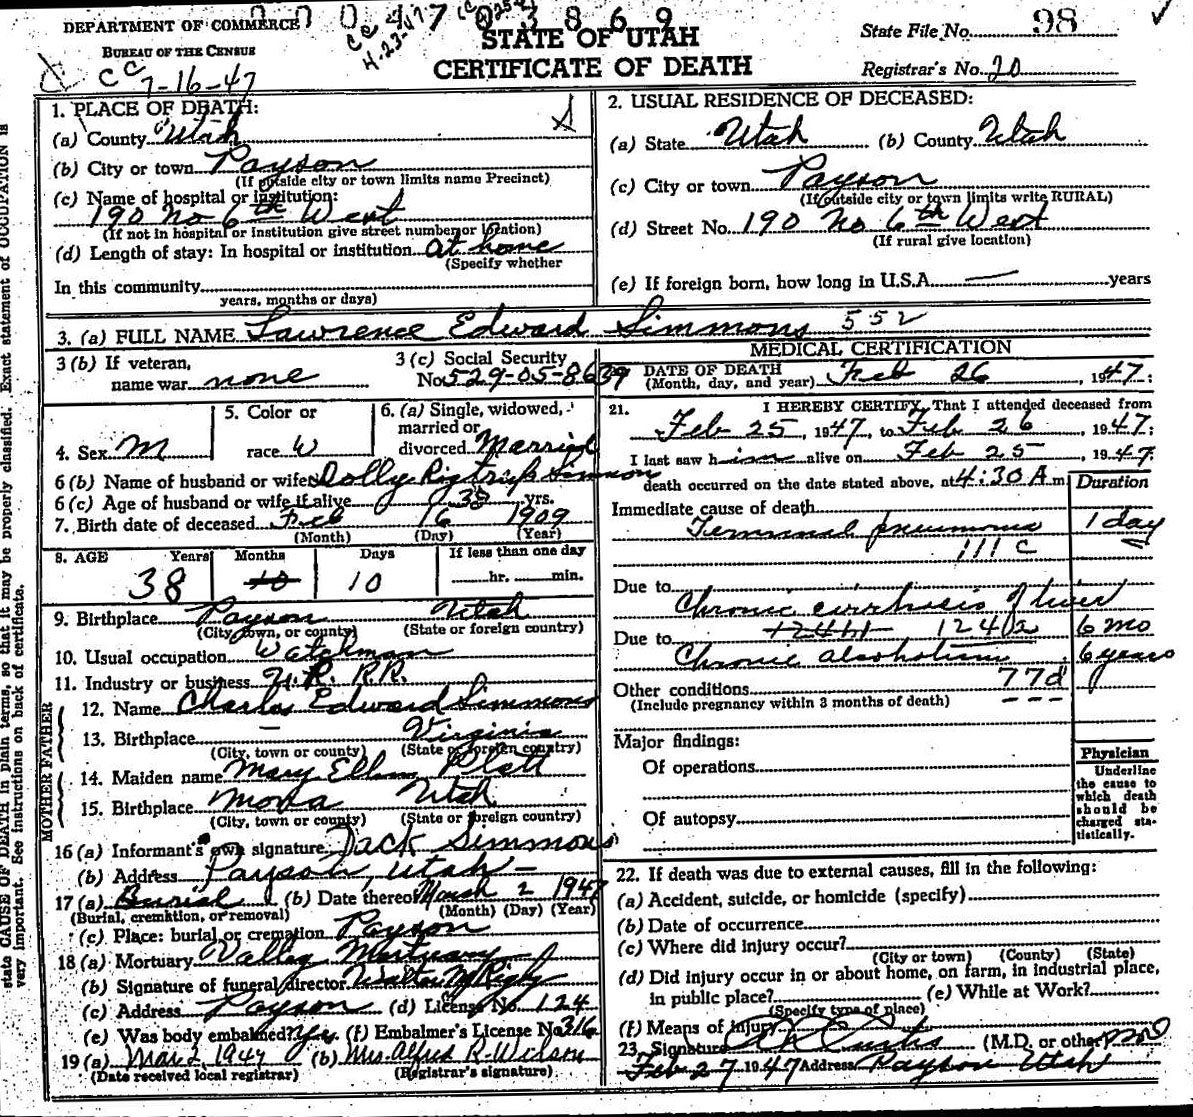 DEPARTMENT OF COMMERCE
BUREAU OF THE CENSUS
CC 7-16-47
CC 4-23-47
3869
STATE OF UTAH
CERTIFICATE OF DEATH
State File No. 98
Registrar's No. 20
1. PLACE OF DEATH:
(a) County Utah
(b) City or town Payson
(If outside city or town limits name Precinct)
(c) Name of hospital or institution:
190 No 6th West
(If not in hospital or institution give street number or location)
(d) Length of stay: In hospital or institution at home
(Specify whether
In this community
years, months or days)
2. USUAL RESIDENCE OF DECEASED:
(a) State Utah (b) County Utah
(c) City or town Payson
(If outside city or town limits write RURAL)
(d) Street No. 190 No 6th West
(If rural give location)
(e) If foreign born, how long in U.S.A. — years
3. (a) FULL NAME Lawrence Edward Simmons 552
3 (b) If veteran,
name war none
3 (c) Social Security
No. 529-05-8639
4. Sex M
5. Color or
race W
6. (a) Single, widowed,
married or
divorced Married
6 (b) Name of husband or wife Dolly Rigtrup Simmon
6 (c) Age of husband or wife if alive 38 yrs.
7. Birth date of deceased Feb 16 1909
(Month) (Day) (Year)
8. AGE Years Months Days If less than one day
38 10 10 hr. min.
9. Birthplace Payson Utah
(City, town, or county) (State or foreign country)
10. Usual occupation Watchman
11. Industry or business R.R.
FATHER
12. Name Charles Edward Simmons
13. Birthplace — Virginia
(City, town or county) (State or foreign country)
MOTHER
14. Maiden name Mary Ellen Platt
15. Birthplace Mona Utah
(City, town or county) (State or foreign country)
16 (a) Informant's own signature Jack Simmons
(b) Address Payson, Utah —
17 (a) Burial (b) Date thereof March 2 1947
(Burial, cremation, or removal) (Month) (Day) (Year)
(c) Place: burial or cremation Payson
18 (a) Mortuary Valley Mortuary
(b) Signature of funeral director
(c) Address Payson (d) License No. 124
(e) Was body embalmed? Yes (f) Embalmer's License No. 316
19 (a) Mar 2, 1947 (b) Mrs. Alfred R. Wilson
(Date received local registrar) (Registrar's signature)
MEDICAL CERTIFICATION
DATE OF DEATH
(Month, day, and year) Feb 26, 1947;
21. I HEREBY CERTIFY, That I attended deceased from
Feb 25, 1947, to Feb 26, 1947;
I last saw him alive on Feb 25, 1947;
death occurred on the date stated above, at 4:30 A m.
Duration
Immediate cause of death
Terminal pneumonia 1 day
111 c
Due to
Chronic cirrhosis of liver
Due to 124b1 124a2 6 mo
Chronic alcoholism 6 years
Other conditions 77d
(Include pregnancy within 3 months of death)
Major findings:
Of operations
Of autopsy
Physician
Underline
the cause to
which death
should be
charged sta-
tistically.
22. If death was due to external causes, fill in the following:
(a) Accident, suicide, or homicide (specify)
(b) Date of occurrence
(c) Where did injury occur?
(City or town) (County) (State)
(d) Did injury occur in or about home, on farm, in industrial place,
in public place? (e) While at Work?
(Specify type of place)
(f) Means of Injury
23. Signature Curtis (M.D. or other) MD
Feb 27 1947 Address Payson Utah
state CAUSE OF DEATH in plain terms, so that it may be properly classified. Exact statement of OCCUPATION is
very important. See instructions on back of certificate.